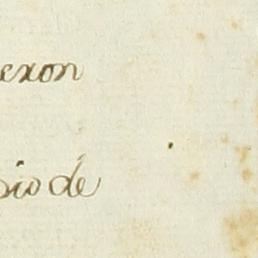 exon
sio de